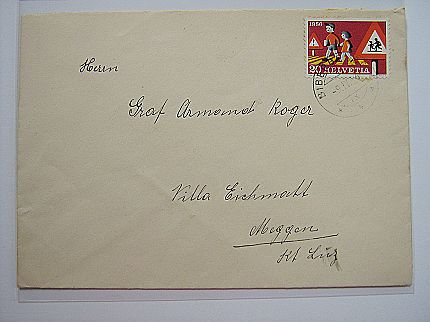 1956
20 HELVETIA
Herrn
Graf Armand Roger
Villa Eichmatt
Meggen
Kt Luz